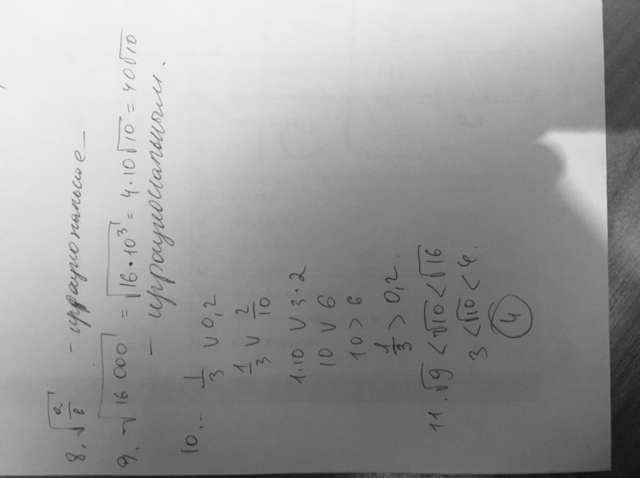 8. √(a/b) - иррациональное
9. -√16 000 = √16·10³ = 4·10√10 = 40√10
- иррациональным.
10. - 1/3 ∨ 0,2
1/3 ∨ 2/10
1·10 ∨ 3·2
10 ∨ 6
10 > 6
1/3 > 0,2.
11. √9 < √10 < √16
3 < √10 < 4.
4